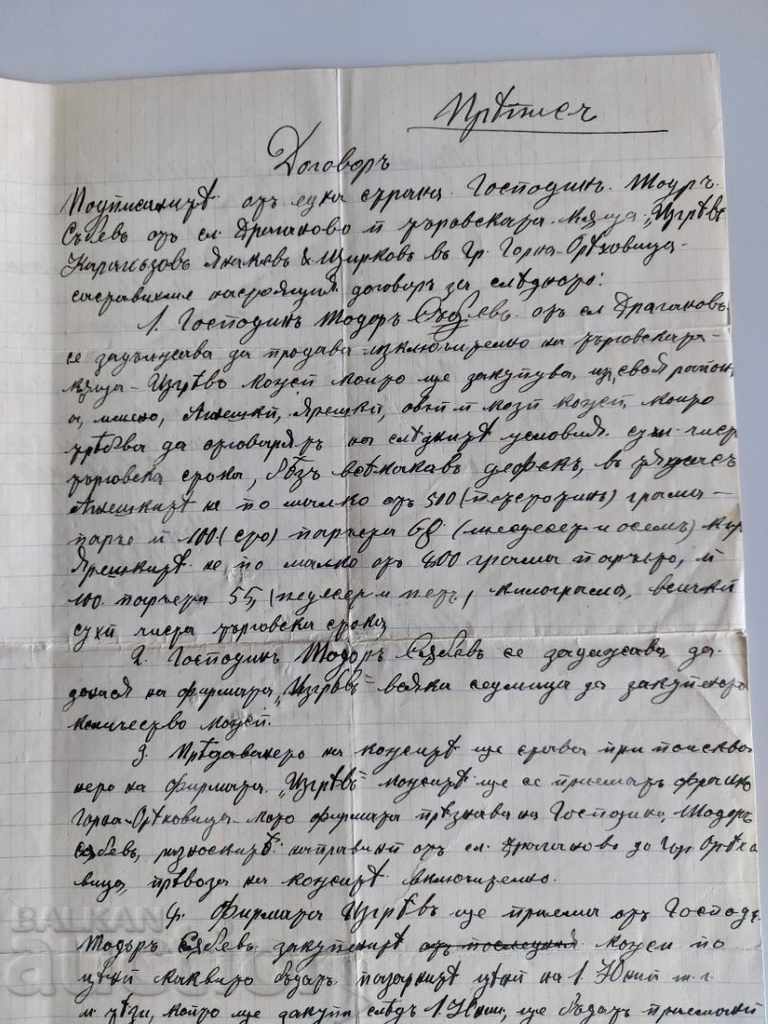 Прѣписъ
Договоръ
Подписанитѣ отъ една страна Господинъ Тодоръ
Събевъ отъ с. Драганово и търговската къща „Изгрѣвъ
Карагьозовъ Янакевъ & Цирковъ въ Гр. Горна-Орѣховица
съставихме настоящия договоръ за слѣдното:
1. Господинъ Тодоръ Събевъ отъ с. Драганово
се задължава да продава изключително на търговската
къща Изгрѣвъ кожи които ще закупува изъ своя район
а, именно, Агнешки, Ярешки, овчи и кози кожи, които
трѣбва да отговарятъ на слѣднитѣ условия сухи чисти
търговска стока, безъ всѣкакъв дефект, въ
Агнешкитѣ не по малко отъ 500 (петстотинъ) грама
парче и 100 (сто) парчета 68 (шесдесетъ и осемъ) кгр
Ярешкитѣ не по малко отъ 400 грама парчето, и
100 парчета 55, (педесетъ и петь) килограма, всички
сухи чиста търговска стока
2. Господинъ Тодоръ Събевъ се задължава да
донася на фирмата „Изгрѣвъ" всяка седмица да закупеното
количество кожи.
3. Прѣдаването на кожитѣ ще става при поискво
нето на фирмата „Изгрѣвъ" кожитѣ ще се приематъ франко
Горна-Орѣховица като фирмата признава на Господина Тодоръ
Събевъ, разноскитѣ направени отъ с. Драганово до Гор. Орѣхо
вица, прѣвоза на кожитѣ включително.
4. Фирмата Изгрѣвъ ще приема отъ Господ.
Тодоръ Събевъ закупенитѣ отъ последния кожи по
цени каквито бѫдатъ пазарнитѣ цени на 1. Юний т. г.
и тѣзи, които ще закупи слѣдъ 1. Юни, ще бѫдатъ приемани
BALKAN
auction